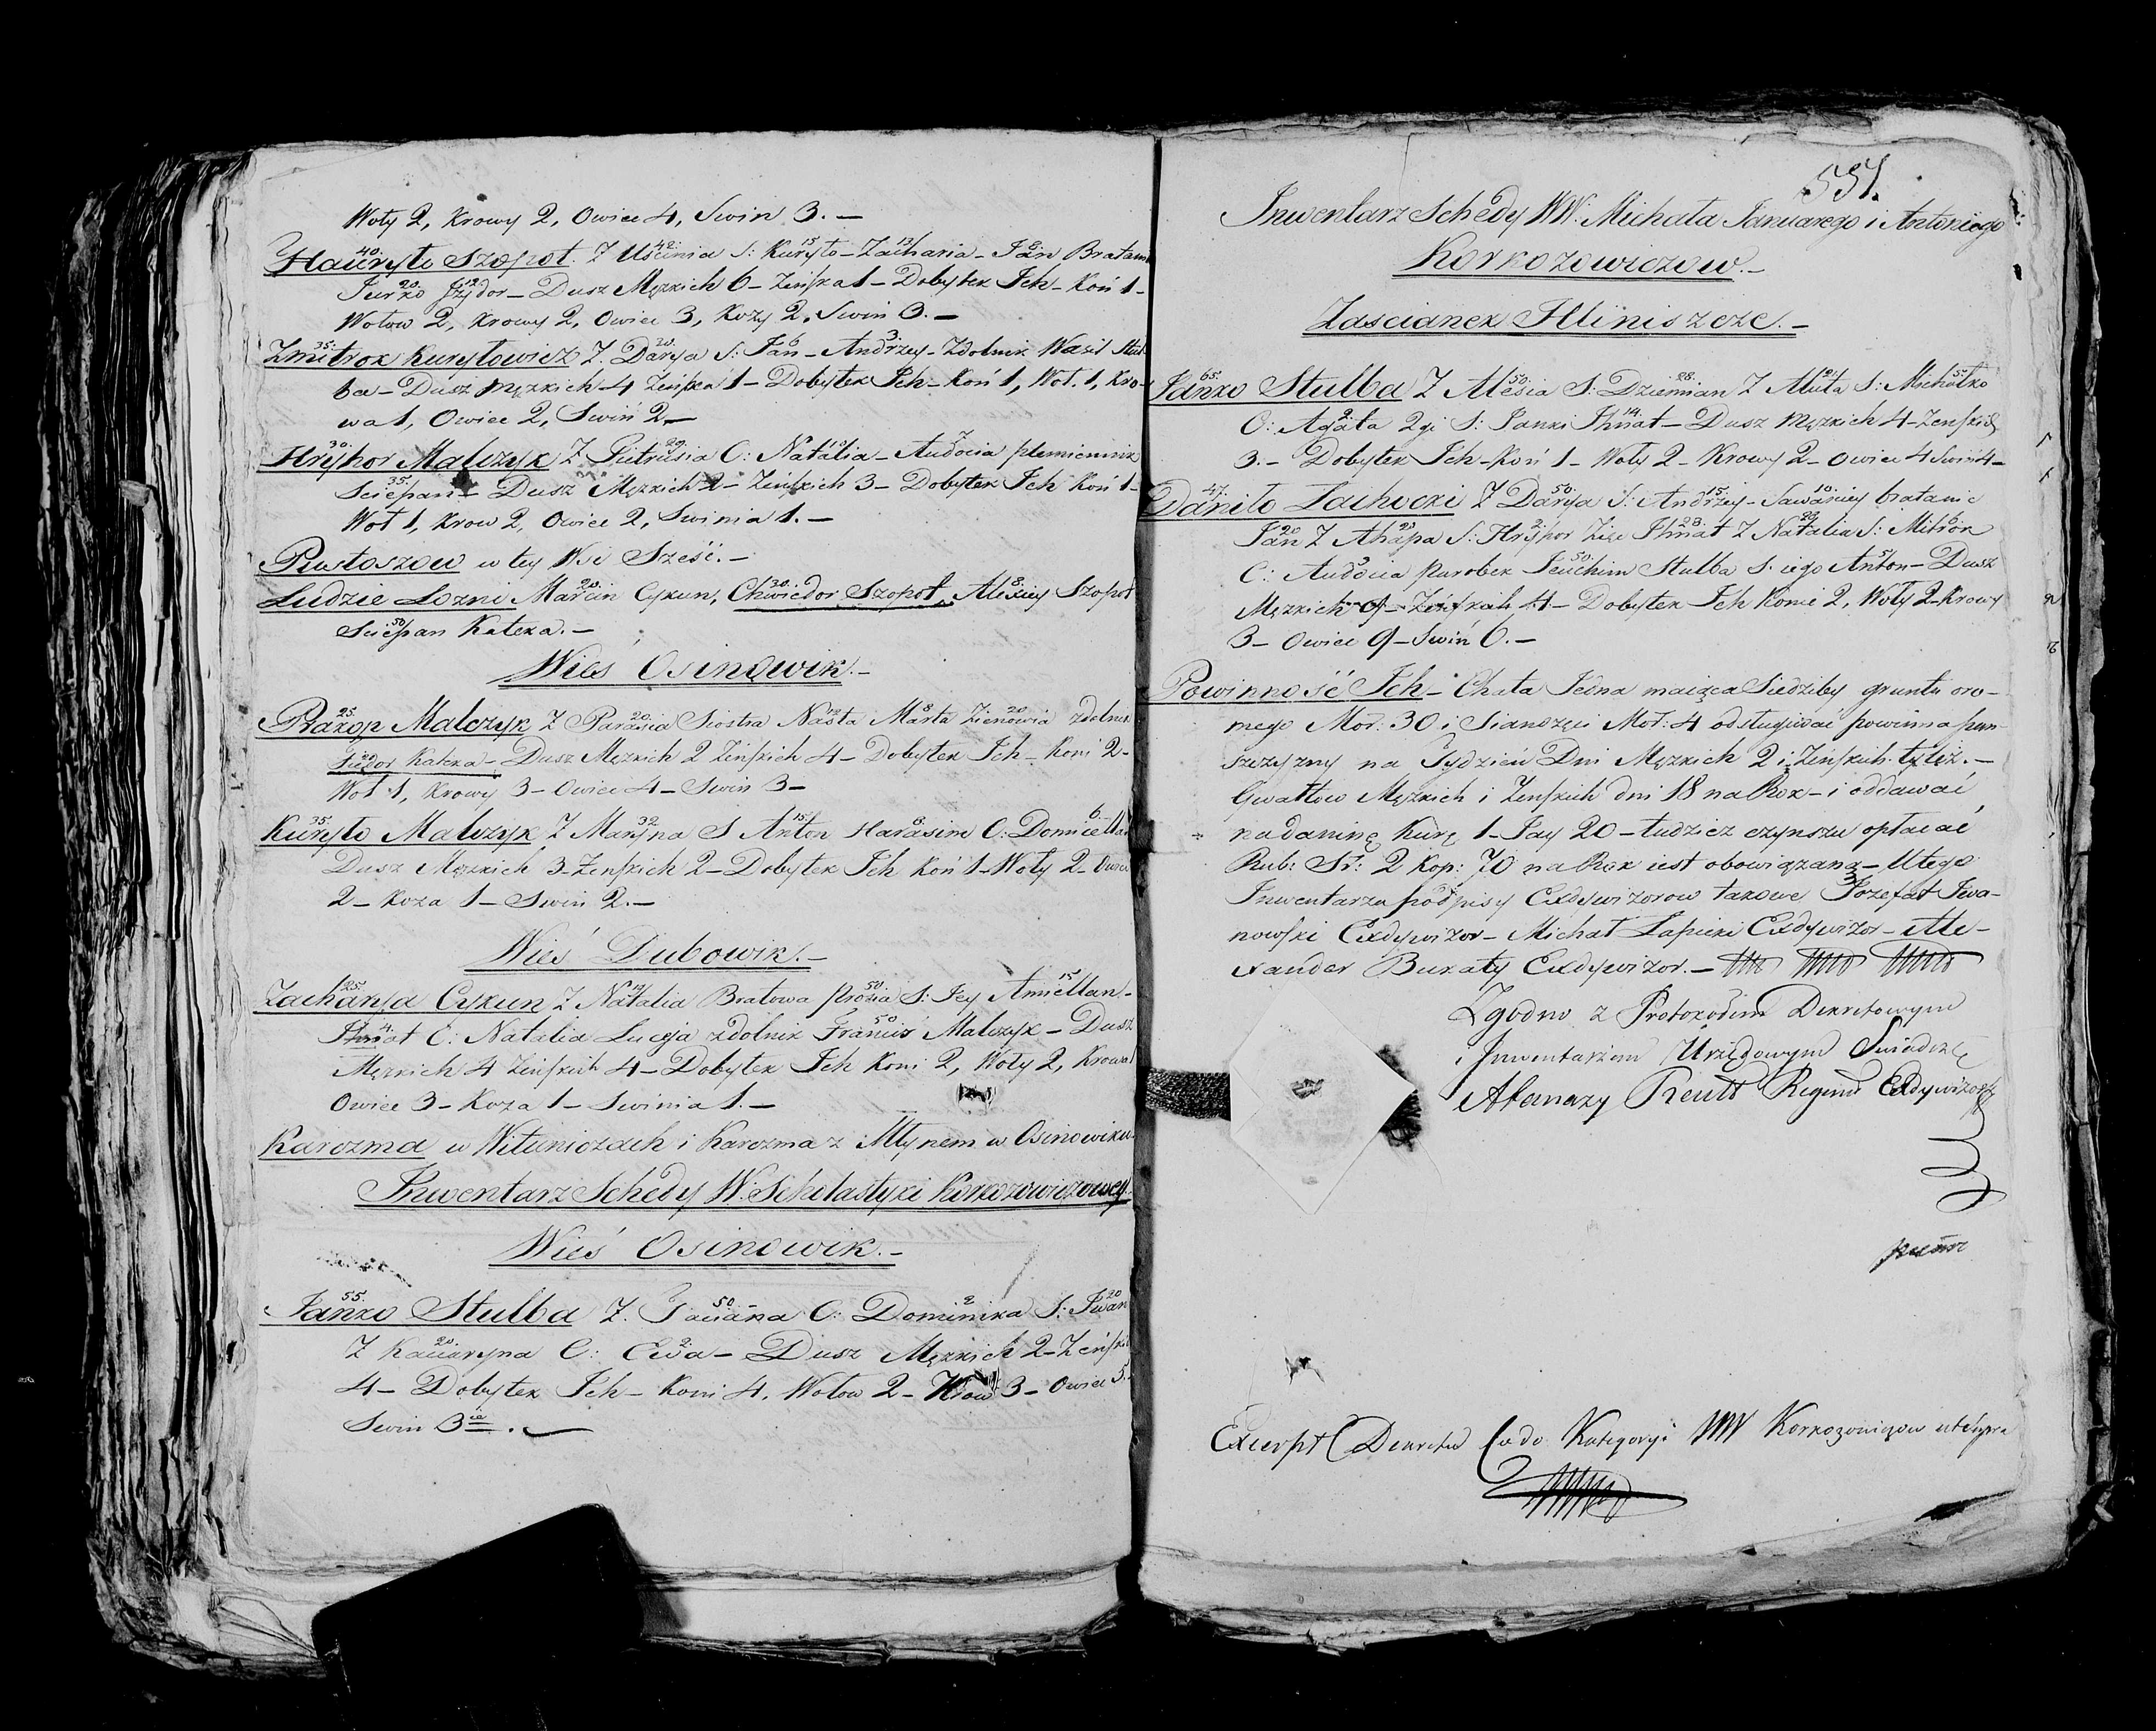 Woły 2, Krowy 2, Owiec 4, Swin 3. —
40. 42. 15 13 9
Hauryło Szopot. Z Uscinia S: Kuryło — Zacharia — Jan Bratani
20. 12
Jurko Jzydor — Dusz Męzkich 6 — Zeńska 1 — Dobytek Ich — Koń 1 —
Wołow 2, Krowy 2, Owiec 3, Kozy 2, Swiń 3. —
35. 20. 6 3.
Zmitrok Kuryłowicz Z. Darya S: Jan — Andrzey — Zdolnik Wasil Stul
ba — Dusz męzkich 4 Zeńska 1 — Dobytek Ich — Koń 1, Woł. 1, Kro-
wa 1, Owiec 2, Swiń 2 —
30. 29. 10 7
Hryhor Malczyk Z Pietrusia C: Natalia — Audocia plemiennik
35.
Sciepan — Dusz Męzkich 2 — Zeńskich 3 — Dobytek Ich Koń 1 —
Woł 1, Krow 2, Owiec 2, Swinia 1. —
Pustoszow w tey Wsi Sześć. —
20. 30. 8
Ludzie Lozni Marcin Cykun, Chwiedor Szopot, Alexiey Szopot
50
Sciepan Kateka. —
Wieś Osinowik. —
25. 20. 12 8 20
Prakop Malczyk Z Parasia Siostra Nasta Marta Zienowia zdolnik
20
Fiedor Kateka — Dusz Męzkich 2 Zeńskich 4 — Dobytek Ich — Koni 2 —
Woł 1, Krowy 3 — Owiec 4 — Swin 3 —
35. 32 15 8 6
Kuryło Malczyk Z Maryna S Anton Harasim C: Domicella
Dusz Męzkich 3 — Zeńskich 2 — Dobytek Ich Koń 1 — Woły 2 — Owiec
2 — Koza 1 — Swiń 2. —
Wieś Dubowik. —
25 19 50 15
Zacharya Cykun Z Natalia Bratowa S: Jey —
4. 50
Ihnat C: Natalia Lucya zdolnik Franciś Malczyk — Dusz
Męzkich 4 Zeńskich 4 — Dobytek Ich Koni 2, Woły 2, Krowa 1
Owiec 3 — Koza 1 — Swinia 1. —
Karczma w Wituniczach i Karczma z Młynem w Osinowiku.
Inwentarz Schedy W: Scholastyki Korkozowiczowey.
Wieś Osinowik. —
55. 50. 2 20
Janko Stulba Z. Taciana C: Dominika S: Jwan
20. 2
Z Kaciaryna C: Ewa — Dusz Męzkich 2 — Zeńskich
4 — Dobytek Ich — Koni 4, Wołow 2 — Krow 3 — Owiec 5. —
Swin 3ie. —
551.
Inwentarz Schedy WW. Michała Januarego i Antoniego
Korkozowiczow. —
Zascianek Hliniszcze. —
65. 50. 28. 21. 5.
Janko Stulba Z Alesia S: Dziemian Z Aluta S: Michałko
2 14.
C: Agata 2gi S: Janki Ihnat — Dusz męzkich 4 — Zenskich
3. — Dobytek Ich — Koń 1 — Woły 2 — Krowy 2 — Owiec 4 Swin 4 —
47. 50. 15. 10.
Daniło Łachocki Z Darya S: Andrzey — Sawasciey bratanic
20 20 2 28. 22 6
Jan Z Ahapa S: Hryhor Zięc Ihnat Z Natalia S: Mitrok
3 50. 5
C: Audocia parobek Jeuchim Stulba S. iego Anton — Dusz
Męzkich 9 — Zeńskich 4 — Dobytek Ich Konie 2, Woły 2 — Krowy
3 — Owiec 9 — Swiń 6. —
Powinność Ich — Chata Jedna maiąca Siedziby gruntu oro-
mego Mor: 30 i Sianożęci Mor: 4 odsługiwać powinna pan-
szczyzny na Tydzień Dni Męzkich 2 i Zeńskich tyleż. —
Gwałtow Męzkich i Zenskich dni 18 na Rok — i oddawać
na daninę Kurę 1 — Jay 20 — tudzież czynszu opłacać
Rub: Sr: 2 Kop: 70 na Rok iest obowiązaną — U tego
Inwentarza podpisy Exdywizorow takowe Jozefat Jwa-
nowski Exdywizor — Michał Łapicki Exdywizor — Ale-
xander Bukaty Exdywizor. —
Zgodno z Protokołem Dekretowym
i Inwentarzem Urzędowym Swiadczę
Atanazy Reutt Regent Exdywizorski
Excerpt Dekretu
Kategoryi WW Korkozowiczow